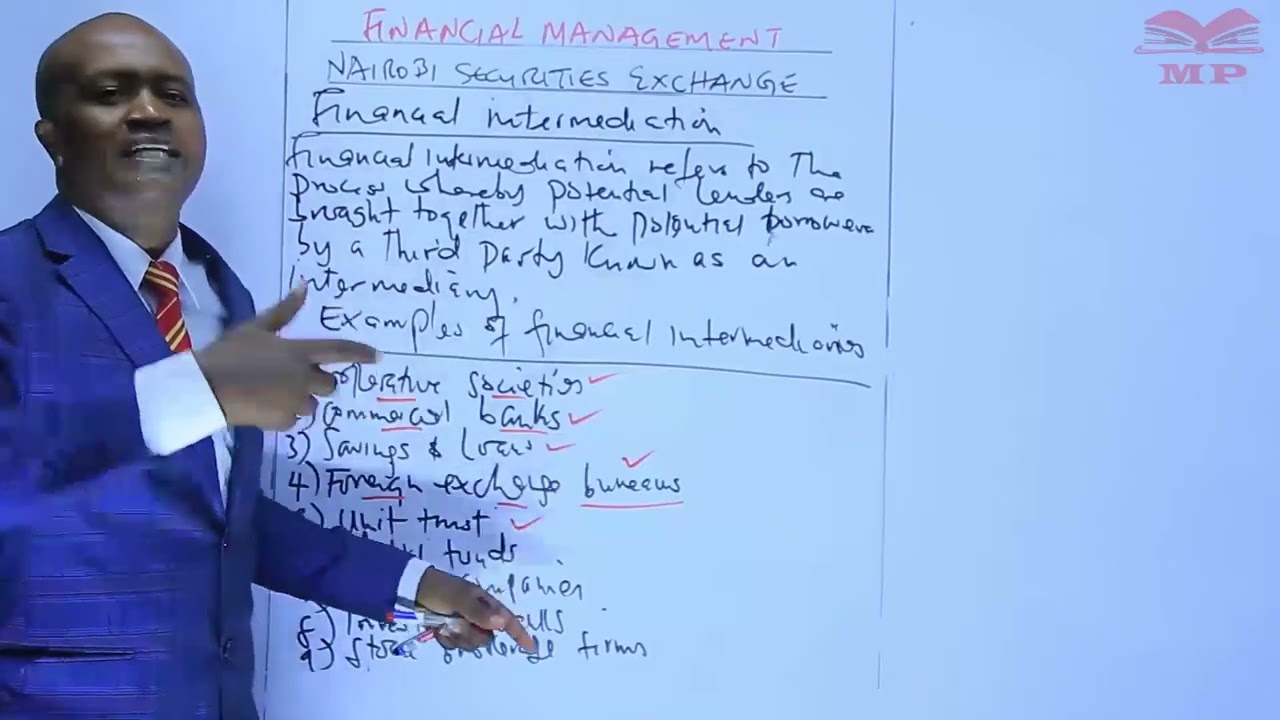 FINANCIAL MANAGEMENT
NAIROBI SECURITIES EXCHANGE
Financial intermediation
Financial Intermediation refers to The
process whereby potential lenders are
brought together with potential borrowers
by a Third Party Known as an
Intermediary.
Examples of financial Intermediaries
societies
Commercial banks
3) Savings & Loans
4) Foreign exchange bureaus
Unit trust
funds
companies
8)
9) Stock brokerage firms
MP